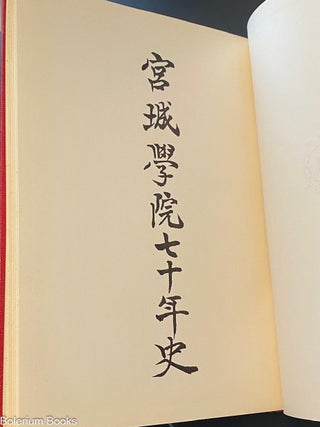 宮城學院七十年史
Bolerium Books